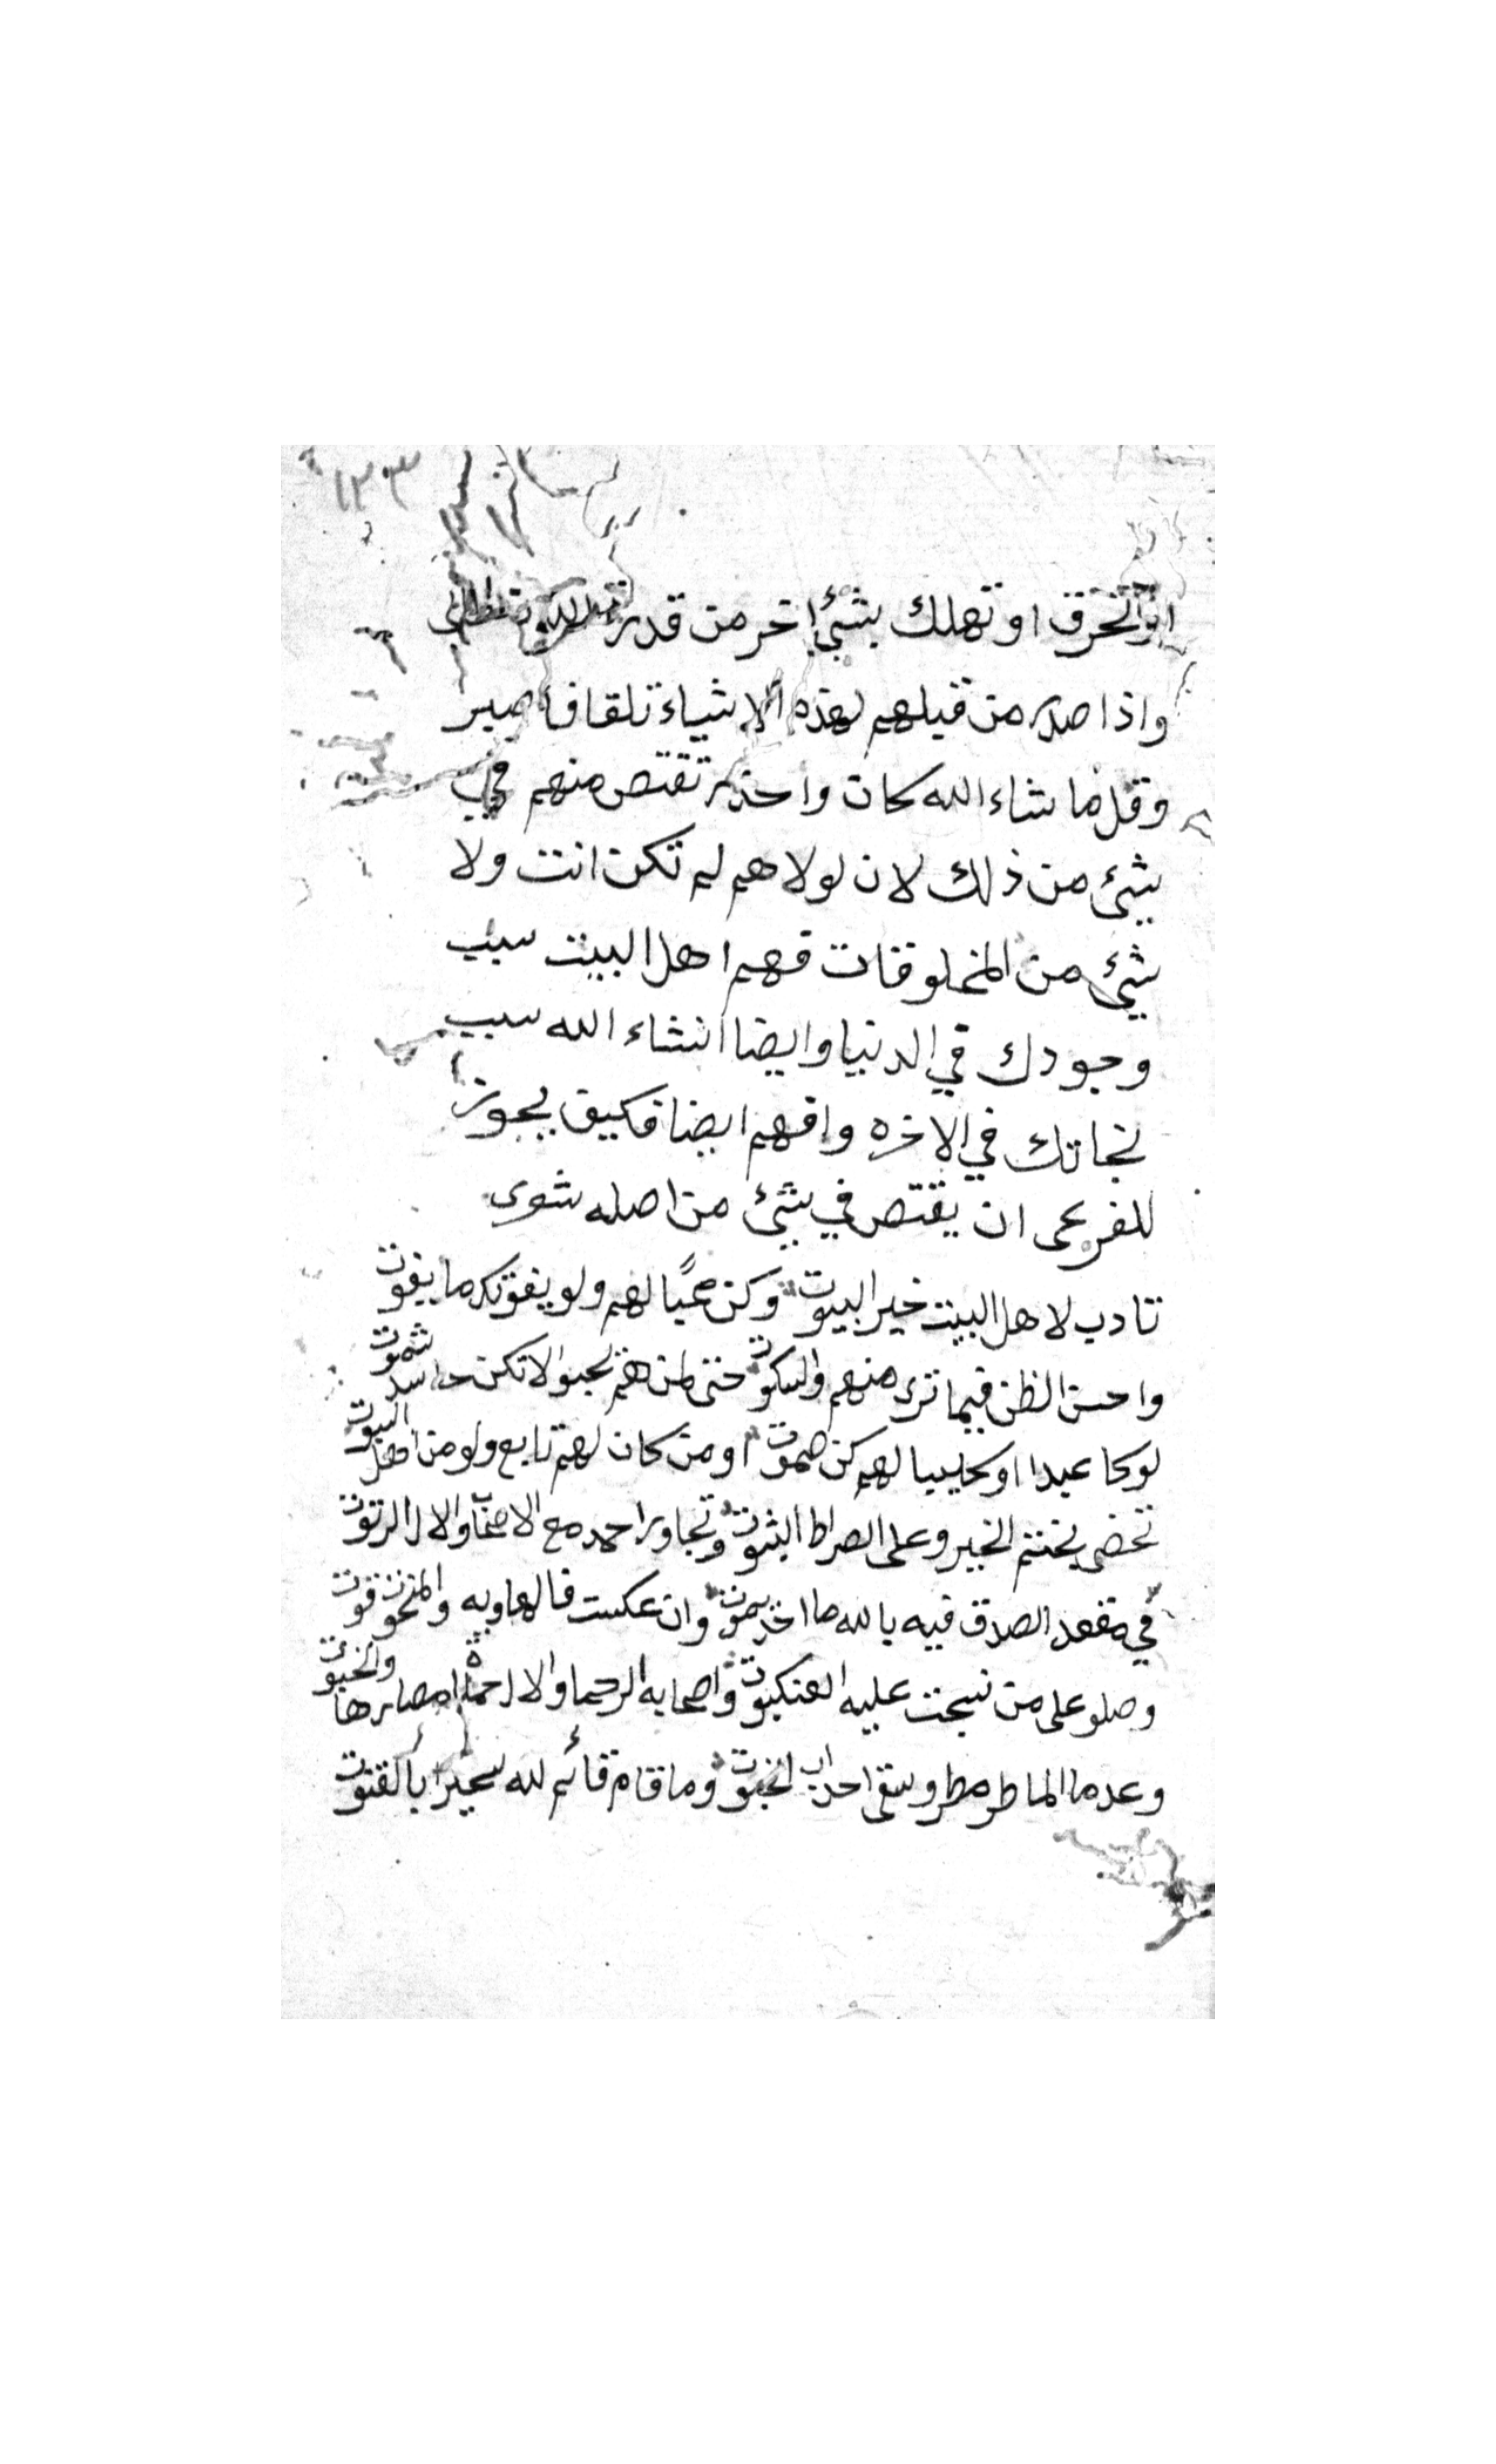 ١٢٣
او تحرق او تهلك بشئ اخر من قدرة الله تعالى
واذا صدر من قبلهم لهذه الاشياء تلقا فاصبر
وقل ما شاء الله كان واحذر تقتص منهم في
شئ من ذلك لان لولاهم لم تكن انت ولا
شئ من المخلوقات فهم اهل البيت سبب
وجودك في الدنيا وايضا انشاء الله سبب
نجاتك في الاخره وافهم ايضا فكيف يجوز
للفرعى ان يقتص في شئ من اصله شوى
تادب لاهل البيت خير البيوت وكن محبًا لهم ولو يفوتك ما يفوت
واحسن الظن فيما ترى منهم والسكوت حتى لمن هم يحبو الا تكن حاسد شموت
لو كا عبدا او كليبا لهم كن صموت او من كان لهم تابع ولو من اهل البيوت
تحضى بختم الخير وعلى الصراط الثبوت وتجاور احمد مع الاصحاب والال الرتوت
في مقعد الصدق فيه بالله ما احد يموت وان عكست فالهاويه والمنحوتوت
وصلو على من نسجت عليه العنكبوت واصحابه الرحما والال مصابرها والخبوت
وعد ما الماطر مطر وسقى احداب الخبوت وما قام قائم لله سحيرا بالقنوت